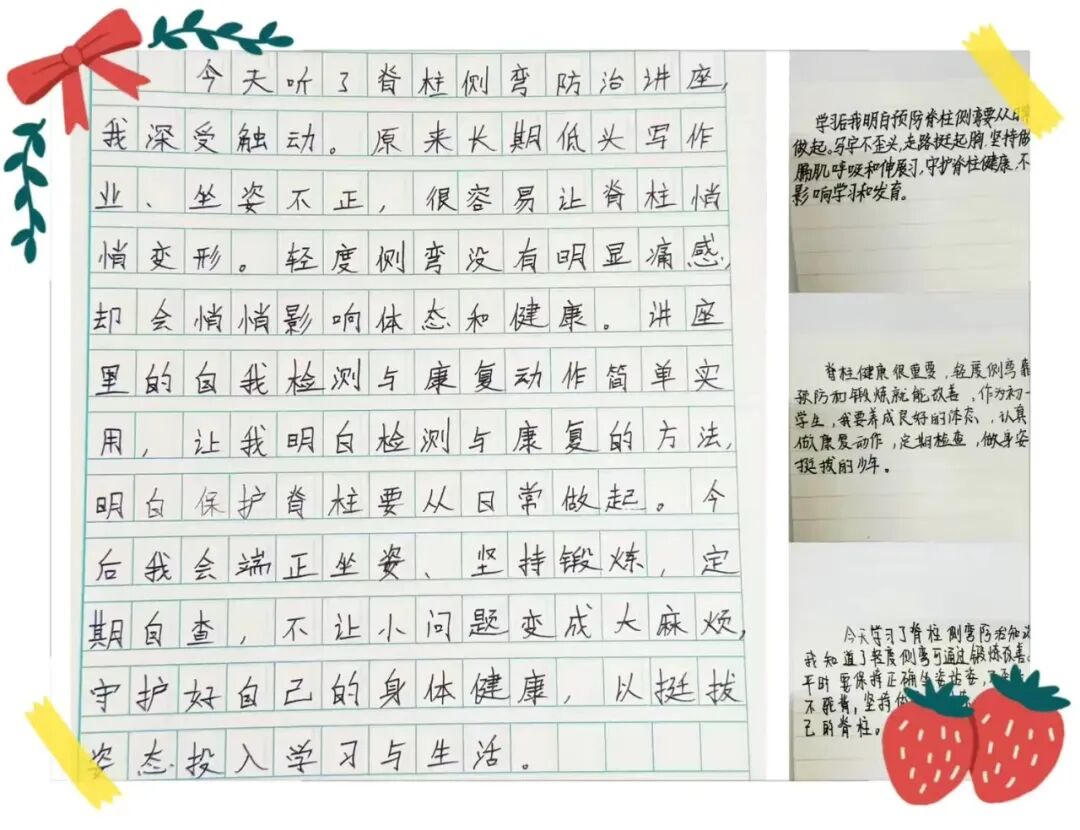 今天听了脊柱侧弯防治讲座，
我深受触动。原来长期低头写作
业、坐姿不正，很容易让脊柱悄
悄变形。轻度侧弯没有明显痛感，
却会悄悄影响体态和健康。讲座
里的自我检测与康复动作简单实
用，让我明白检测与康复的方法，
明白保护脊柱要从日常做起。今
后我会端正坐姿、坚持锻炼，定
期自查，不让小问题变成大麻烦，
守护好自己的身体健康，以挺拔
姿态投入学习与生活。
学习后我明白预防脊柱侧弯要从日常
做起。写字不歪头，走路挺起胸，坚持做
肌呼吸和伸展习，守护脊柱健康，不
影响学习和发育。
脊柱健康很重要，轻度侧弯靠
预防和锻炼就能改善，作为初一
学生，我要养成良好的体态，认真
做康复动作，定期检查，做身姿
挺拔的少年。
今天学习了脊柱侧弯防治知识
我知道了轻度侧弯可通过锻炼改善。
平时要保持正确坐姿站姿，
不驼背，坚持
己的脊柱。